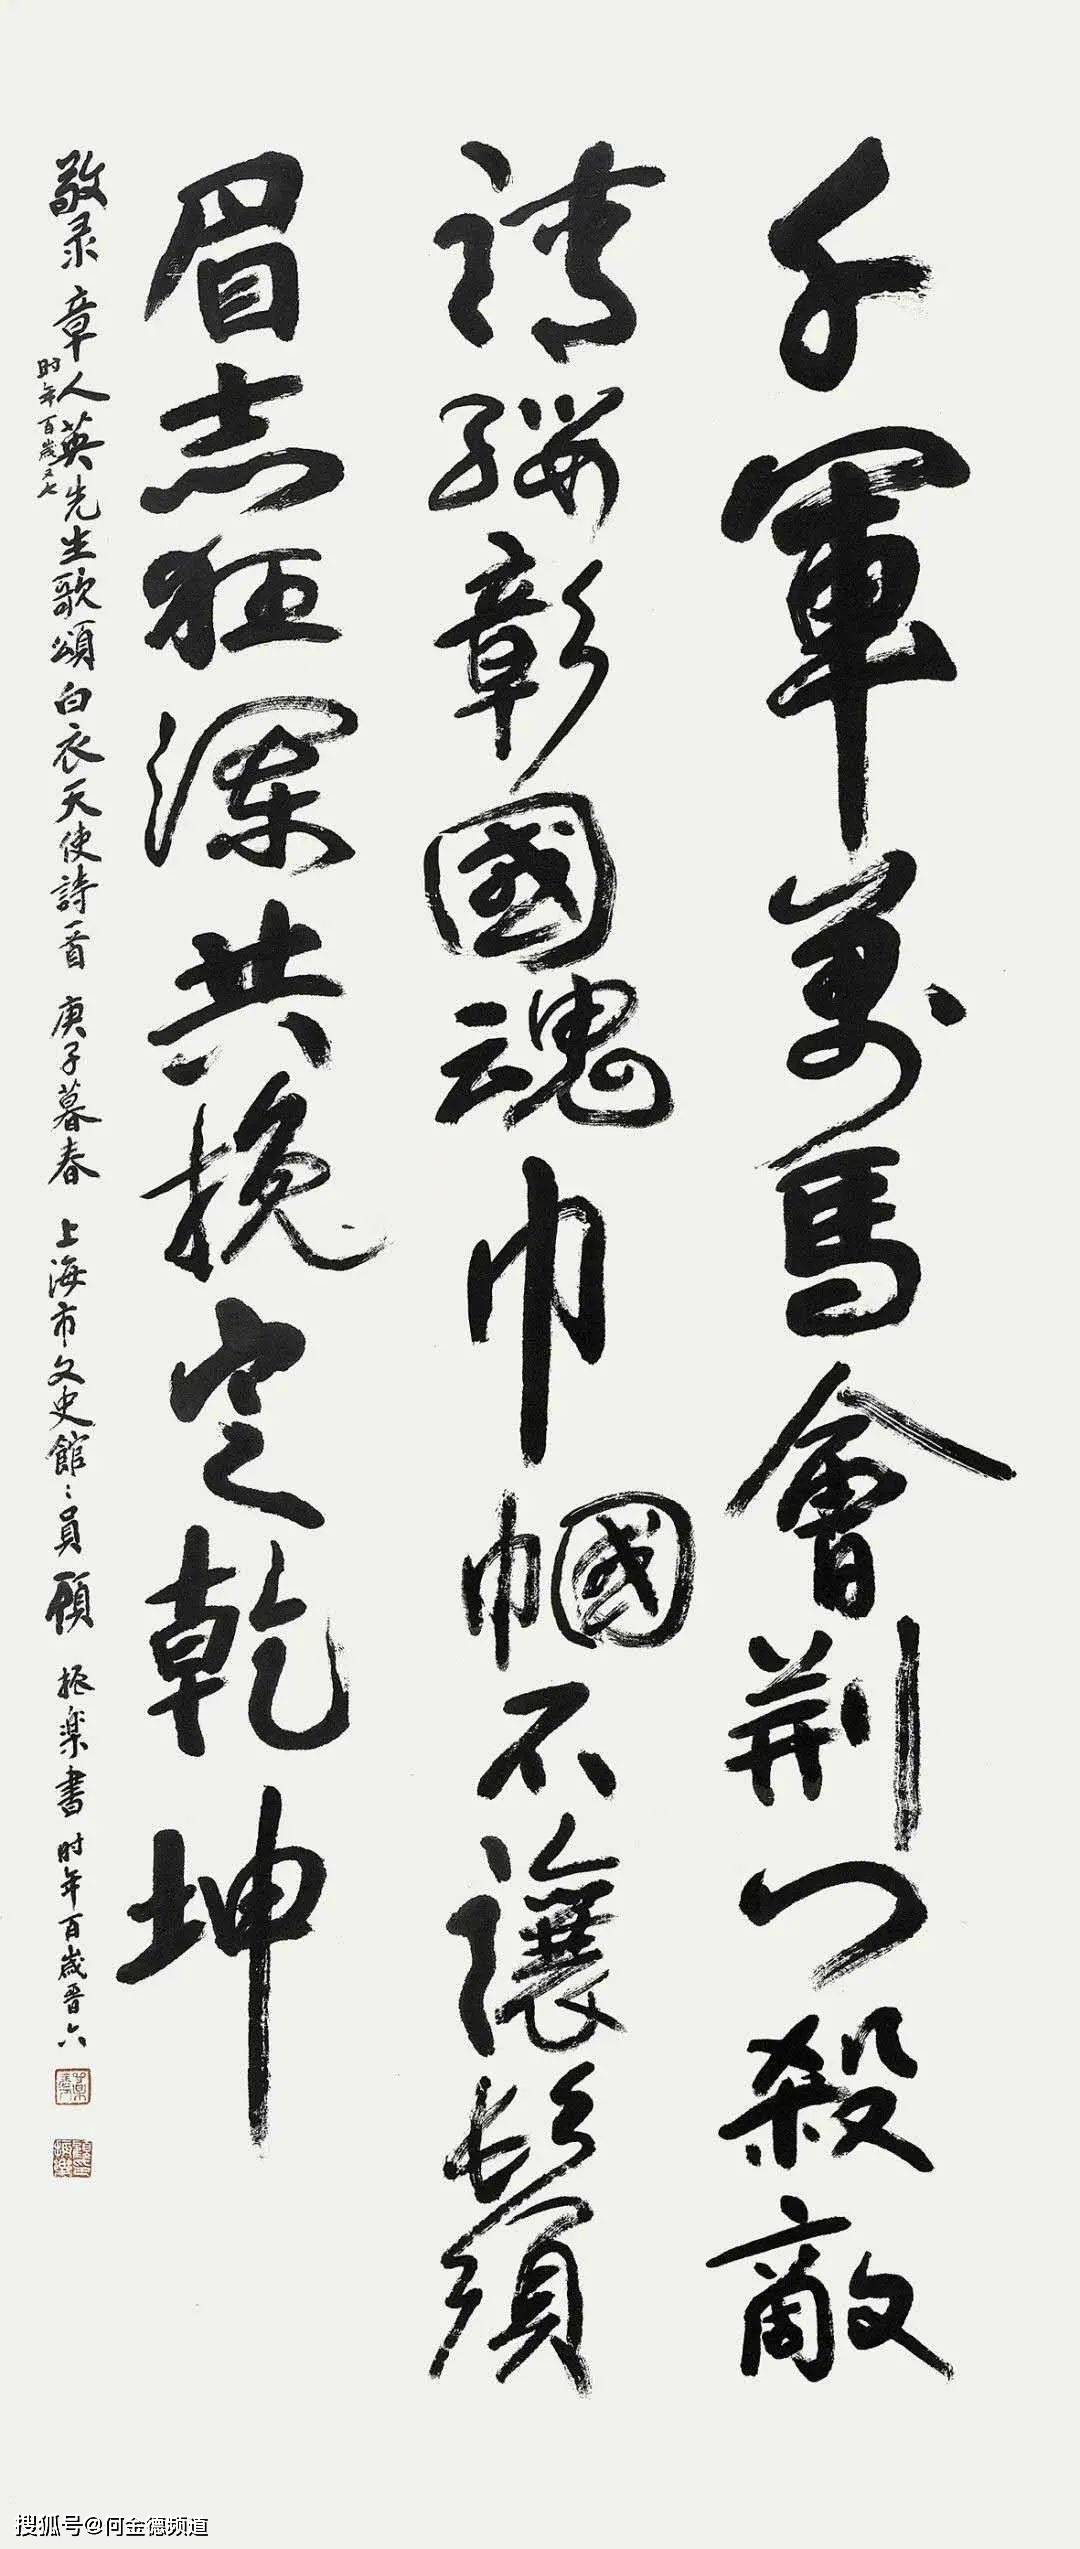 千軍萬馬會荆门殺敵
請纓彰國魂巾帼不讓鬚
眉志狂瀾共挽定乾坤
敬录章人英先生歌頌白衣天使詩一首 庚子暮春 上海市文史館〻員顾振楽書时年百歲晋六
时年百歲又七
搜狐号@何金德频道